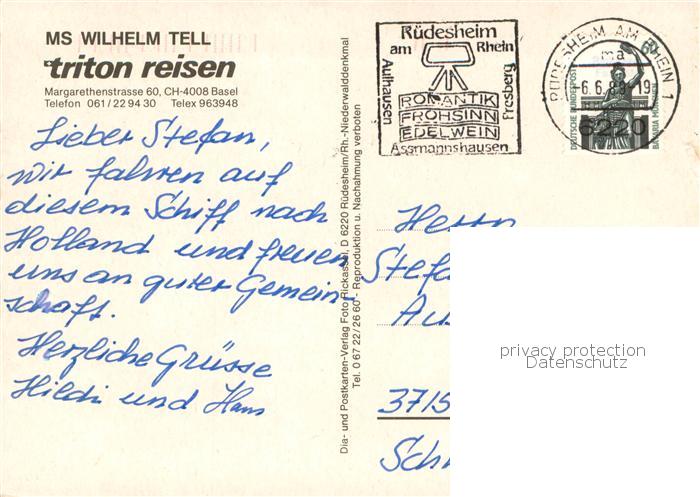 MS WILHELM TELL
triton reisen
Margarethenstrasse 60, CH-4008 Basel
Telefon 061/22 94 30 Telex 963948
Lieber Stefan,
wir fahren auf
diesem Schiff nach
Holland und freuen
uns an guter Gemein-
schaft.
Herzliche Grüsse
Hildi und Hans
Dia- und Postkarten-Verlag Foto Rickassel, D 6220 Rüdesheim/Rh.-Niederwalddenkmal
Tel. 0 67 22/26 60 - Reproduktion u. Nachahmung verboten
Rüdesheim
am Rhein
Aulhausen
Presberg
ROMANTIK
FROHSINN
EDELWEIN
Assmannshausen
RÜDESHEIM AM RHEIN 1
ma
-6.6.89-19
6220
DEUTSCHE BUNDESPOST
60
BAVARIA MÜNCHEN
Herrn
Stefa
Au
3715
Sch
privacy protection
Datenschutz